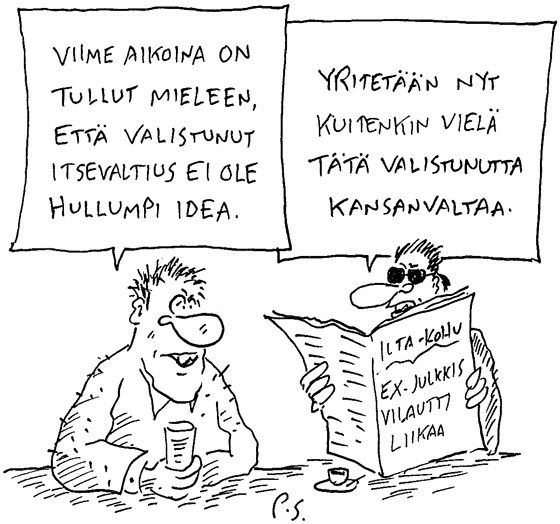 VIIME AIKOINA ON
TULLUT MIELEEN,
ETTÄ VALISTUNUT
ITSEVALTIUS EI OLE
HULLUMPI IDEA.
YRITETÄÄN NYT
KUITENKIN VIELÄ
TÄTÄ VALISTUNUTTA
KANSANVALTAA.
ILTA-KOHU
EX-JULKKIS
VILAUTTI
LIIKAA
P.S.